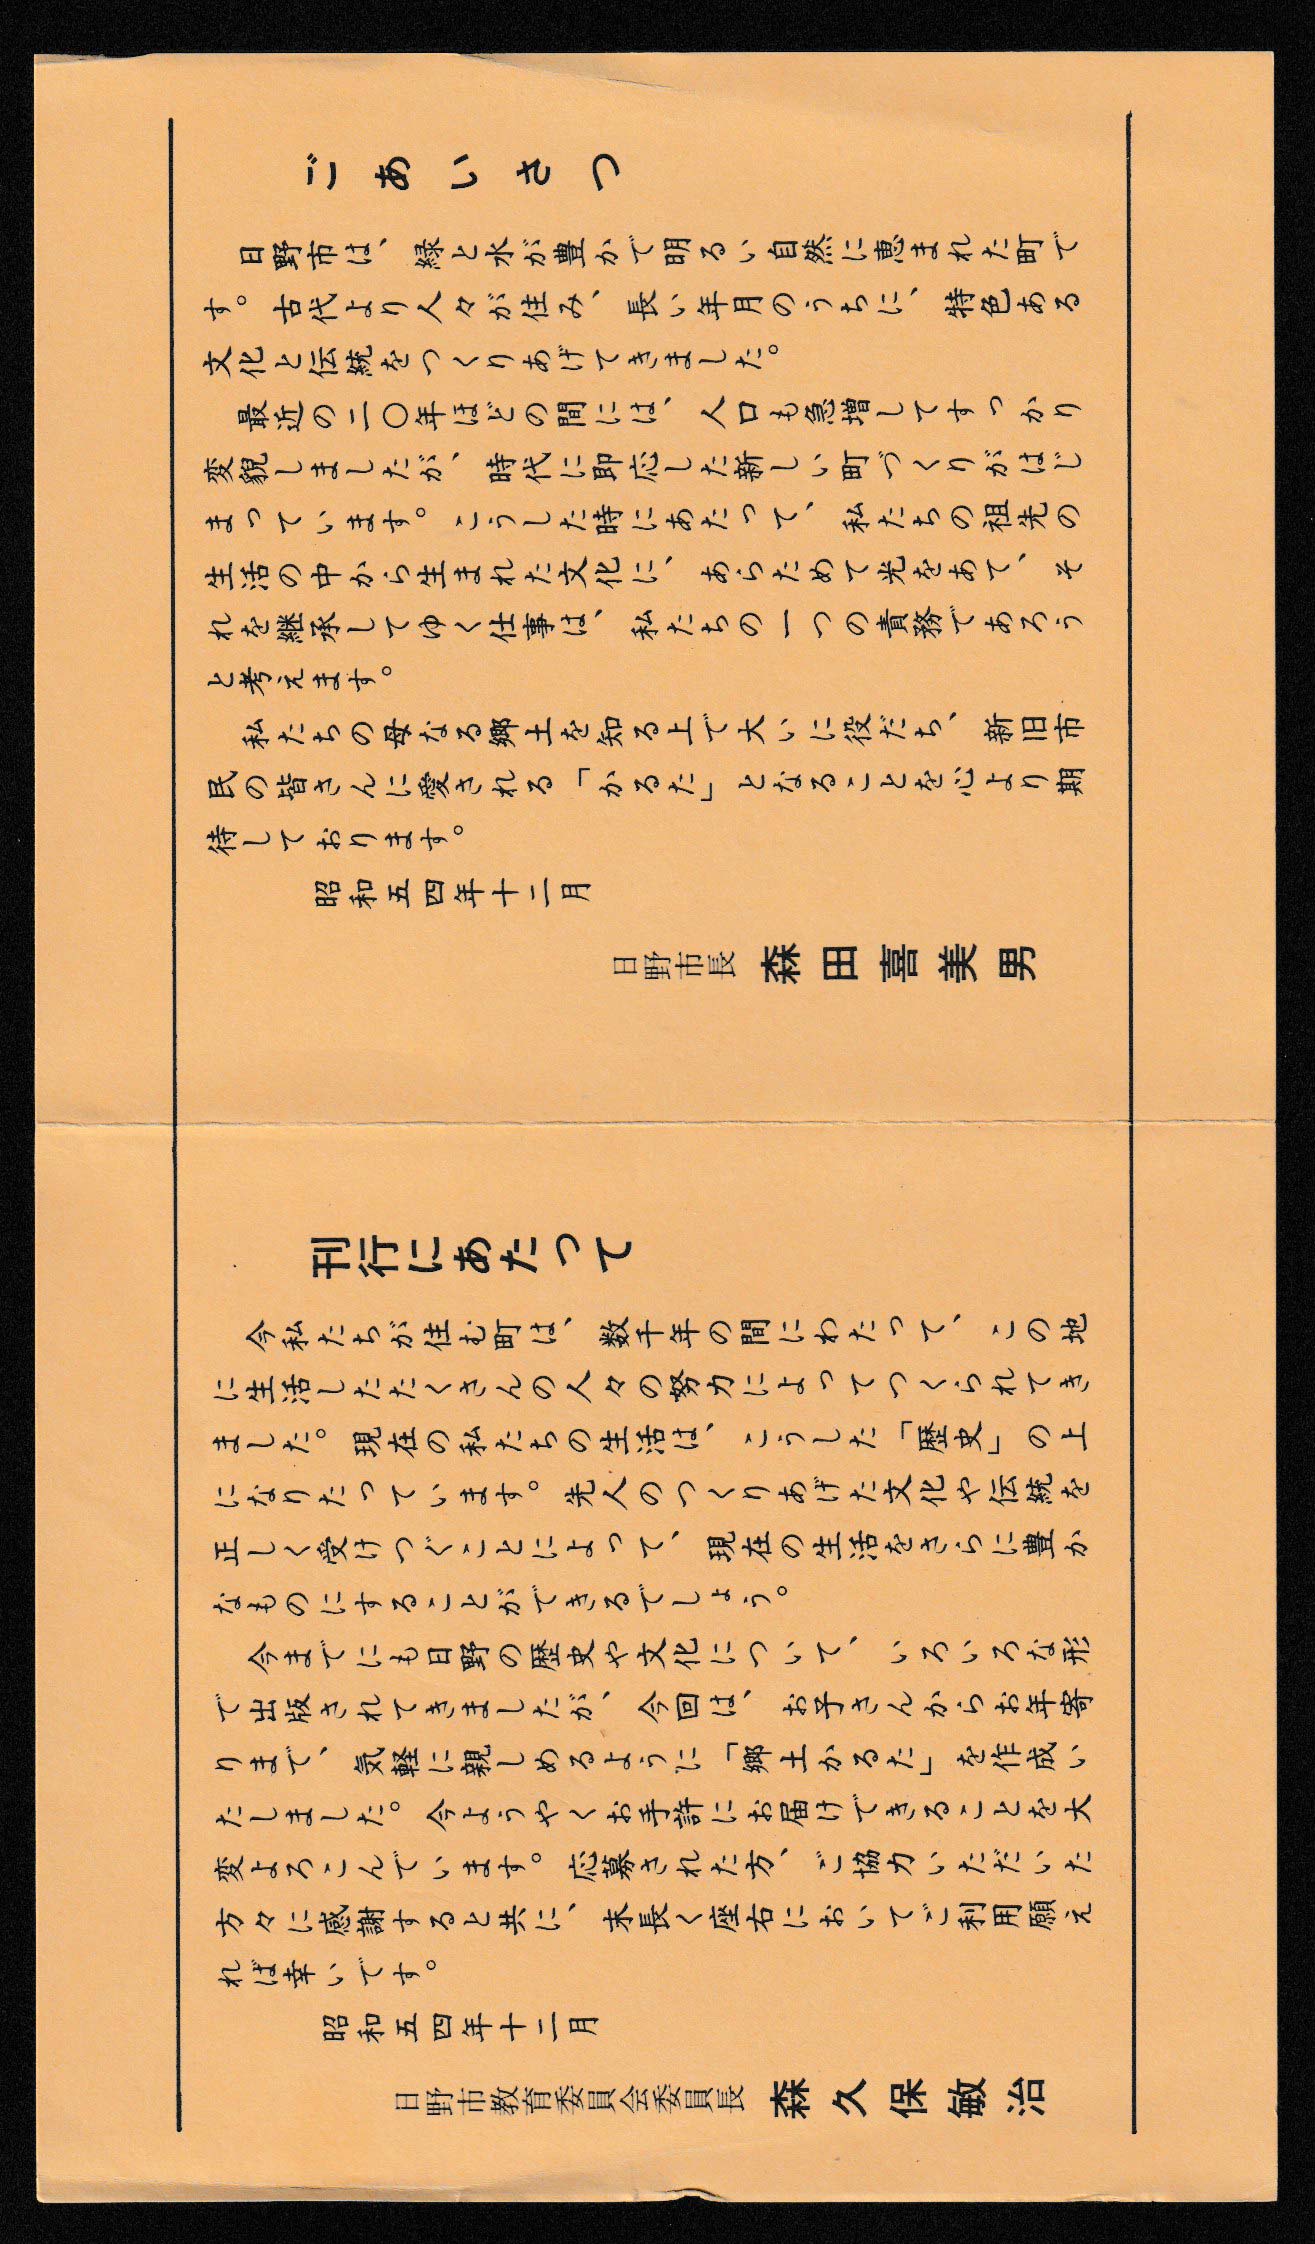 ごあいさつ
日野市は、緑と水が豊かで明るい自然に恵まれた町で
す。古代より人々が住み、長い年月のうちに、特色ある
文化と伝統をつくりあげてきました。
最近の二〇年ほどの間には、人口も急増してすっかり
変貌しましたが、時代に即応した新しい町づくりがはじ
まっています。こうした時にあたって、私たちの祖先の
生活の中から生まれた文化に、あらためて光をあて、そ
れを継承してゆく仕事は、私たちの一つの責務であろう
と考えます。
私たちの母なる郷土を知る上で大いに役だち、新旧市
民の皆さんに愛される「かるた」となることを心より期
待しております。
昭和五四年十二月
日野市長 森田喜美男
刊行にあたって
今私たちが住む町は、数千年の間にわたって、この地
に生活したたくさんの人々の努力によってつくられてき
ました。現在の私たちの生活は、こうした「歴史」の上
になりたっています。先人のつくりあげた文化や伝統を
正しく受けつぐことによって、現在の生活をさらに豊か
なものにすることができるでしょう。
今までにも日野の歴史や文化について、いろいろな形
で出版されてきましたが、今回は、お子さんからお年寄
りまで、気軽に親しめるように「郷土かるた」を作成い
たしました。今ようやくお手許にお届けできることを大
変よろこんでいます。応募された方、ご協力いただいた
方々に感謝すると共に、末長く座右においてご利用願え
れば幸いです。
昭和五四年十二月
日野市教育委員会委員長 森久保敏治